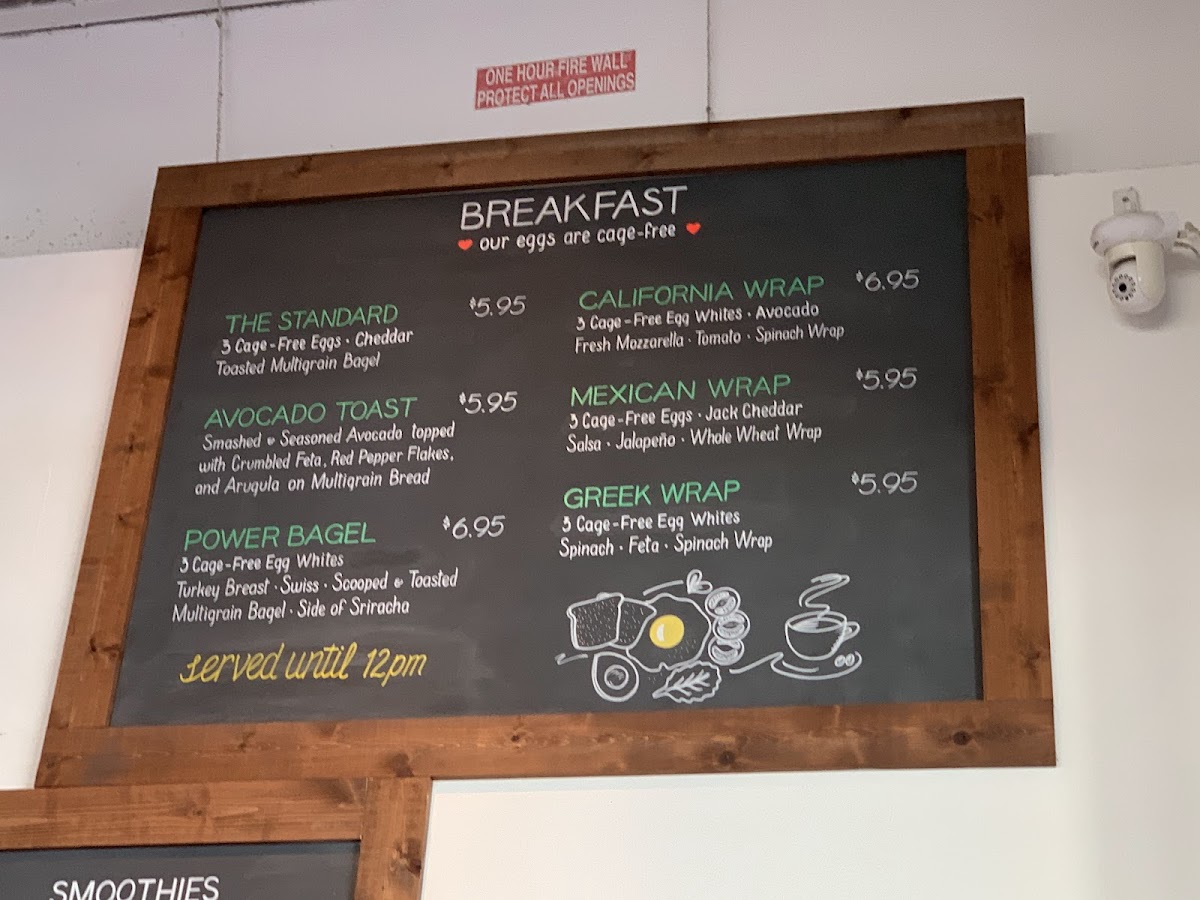 ONE HOUR FIRE WALL
PROTECT ALL OPENINGS
BREAKFAST
our eggs are cage-free
THE STANDARD $5.95
3 Cage-Free Eggs · Cheddar
Toasted Multigrain Bagel
AVOCADO TOAST $5.95
Smashed & Seasoned Avocado topped
with Crumbled Feta, Red Pepper Flakes,
and Arugula on Multigrain Bread
POWER BAGEL $6.95
3 Cage-Free Egg Whites
Turkey Breast · Swiss · Scooped & Toasted
Multigrain Bagel · Side of Sriracha
served until 12pm
CALIFORNIA WRAP $6.95
3 Cage-Free Egg Whites · Avocado
Fresh Mozzarella · Tomato · Spinach Wrap
MEXICAN WRAP $5.95
3 Cage-Free Eggs · Jack Cheddar
Salsa · Jalapeño · Whole Wheat Wrap
GREEK WRAP $5.95
3 Cage-Free Egg Whites
Spinach · Feta · Spinach Wrap
SMOOTHIES